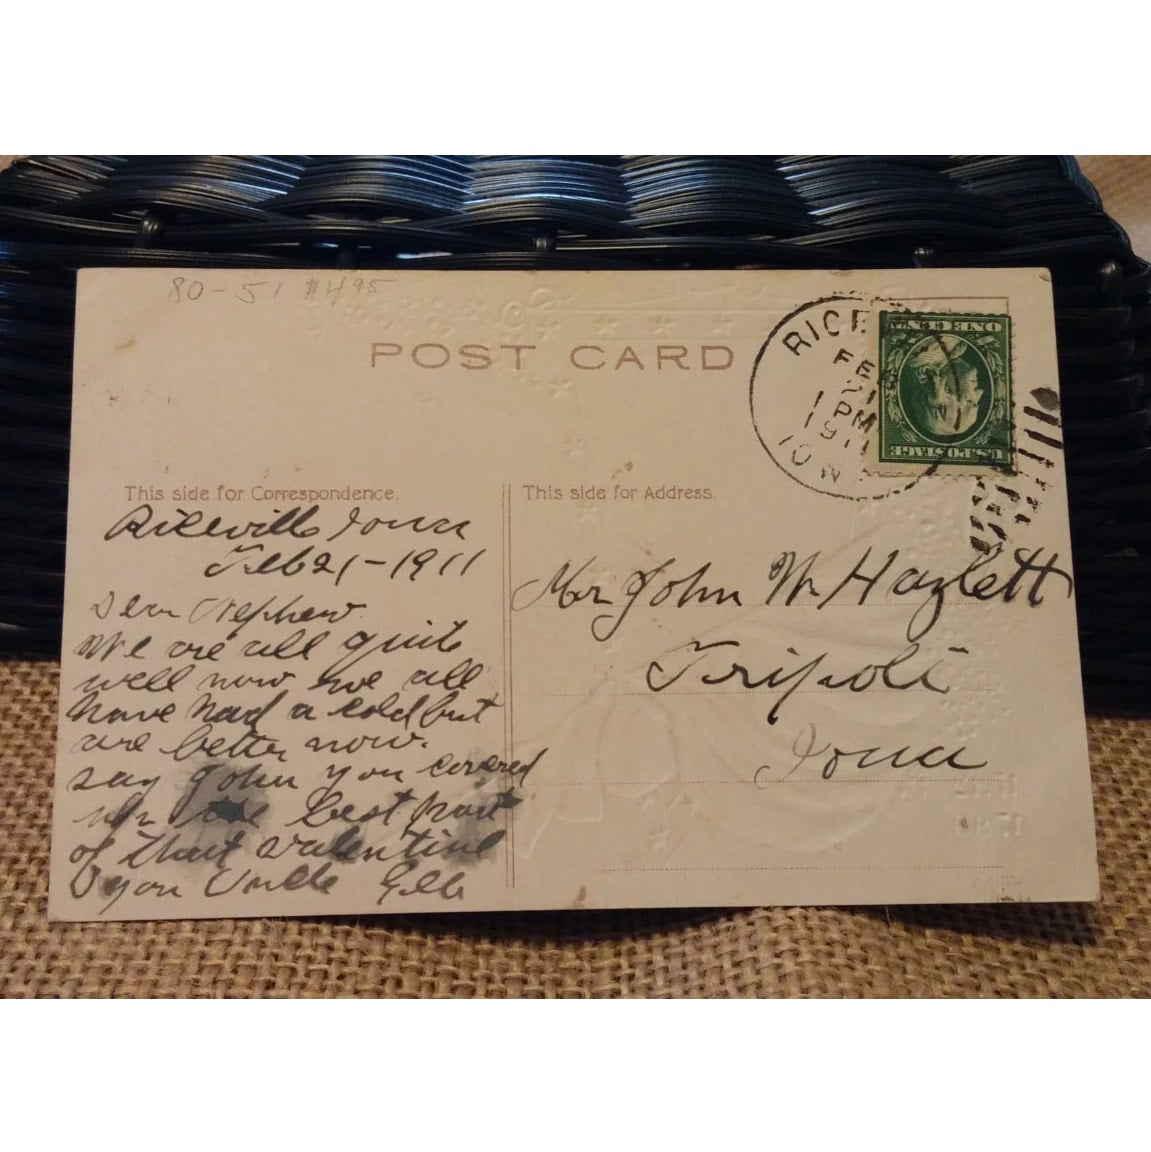 80-51 $4.95
POST CARD
RICE
FEB
21
1 PM
1911
IOW
ONE CENT
U.S. POSTAGE
This side for Correspondence.
Riceville Iowa
Feb 21-1911
Dear Nephew.
We are all quite
well now we all
have had a cold but
are better now.
say John you covered
the best part
of that valentine
you Uncle
This side for Address.
Mr John W. Hazlett
Tripoli
Iowa
1732